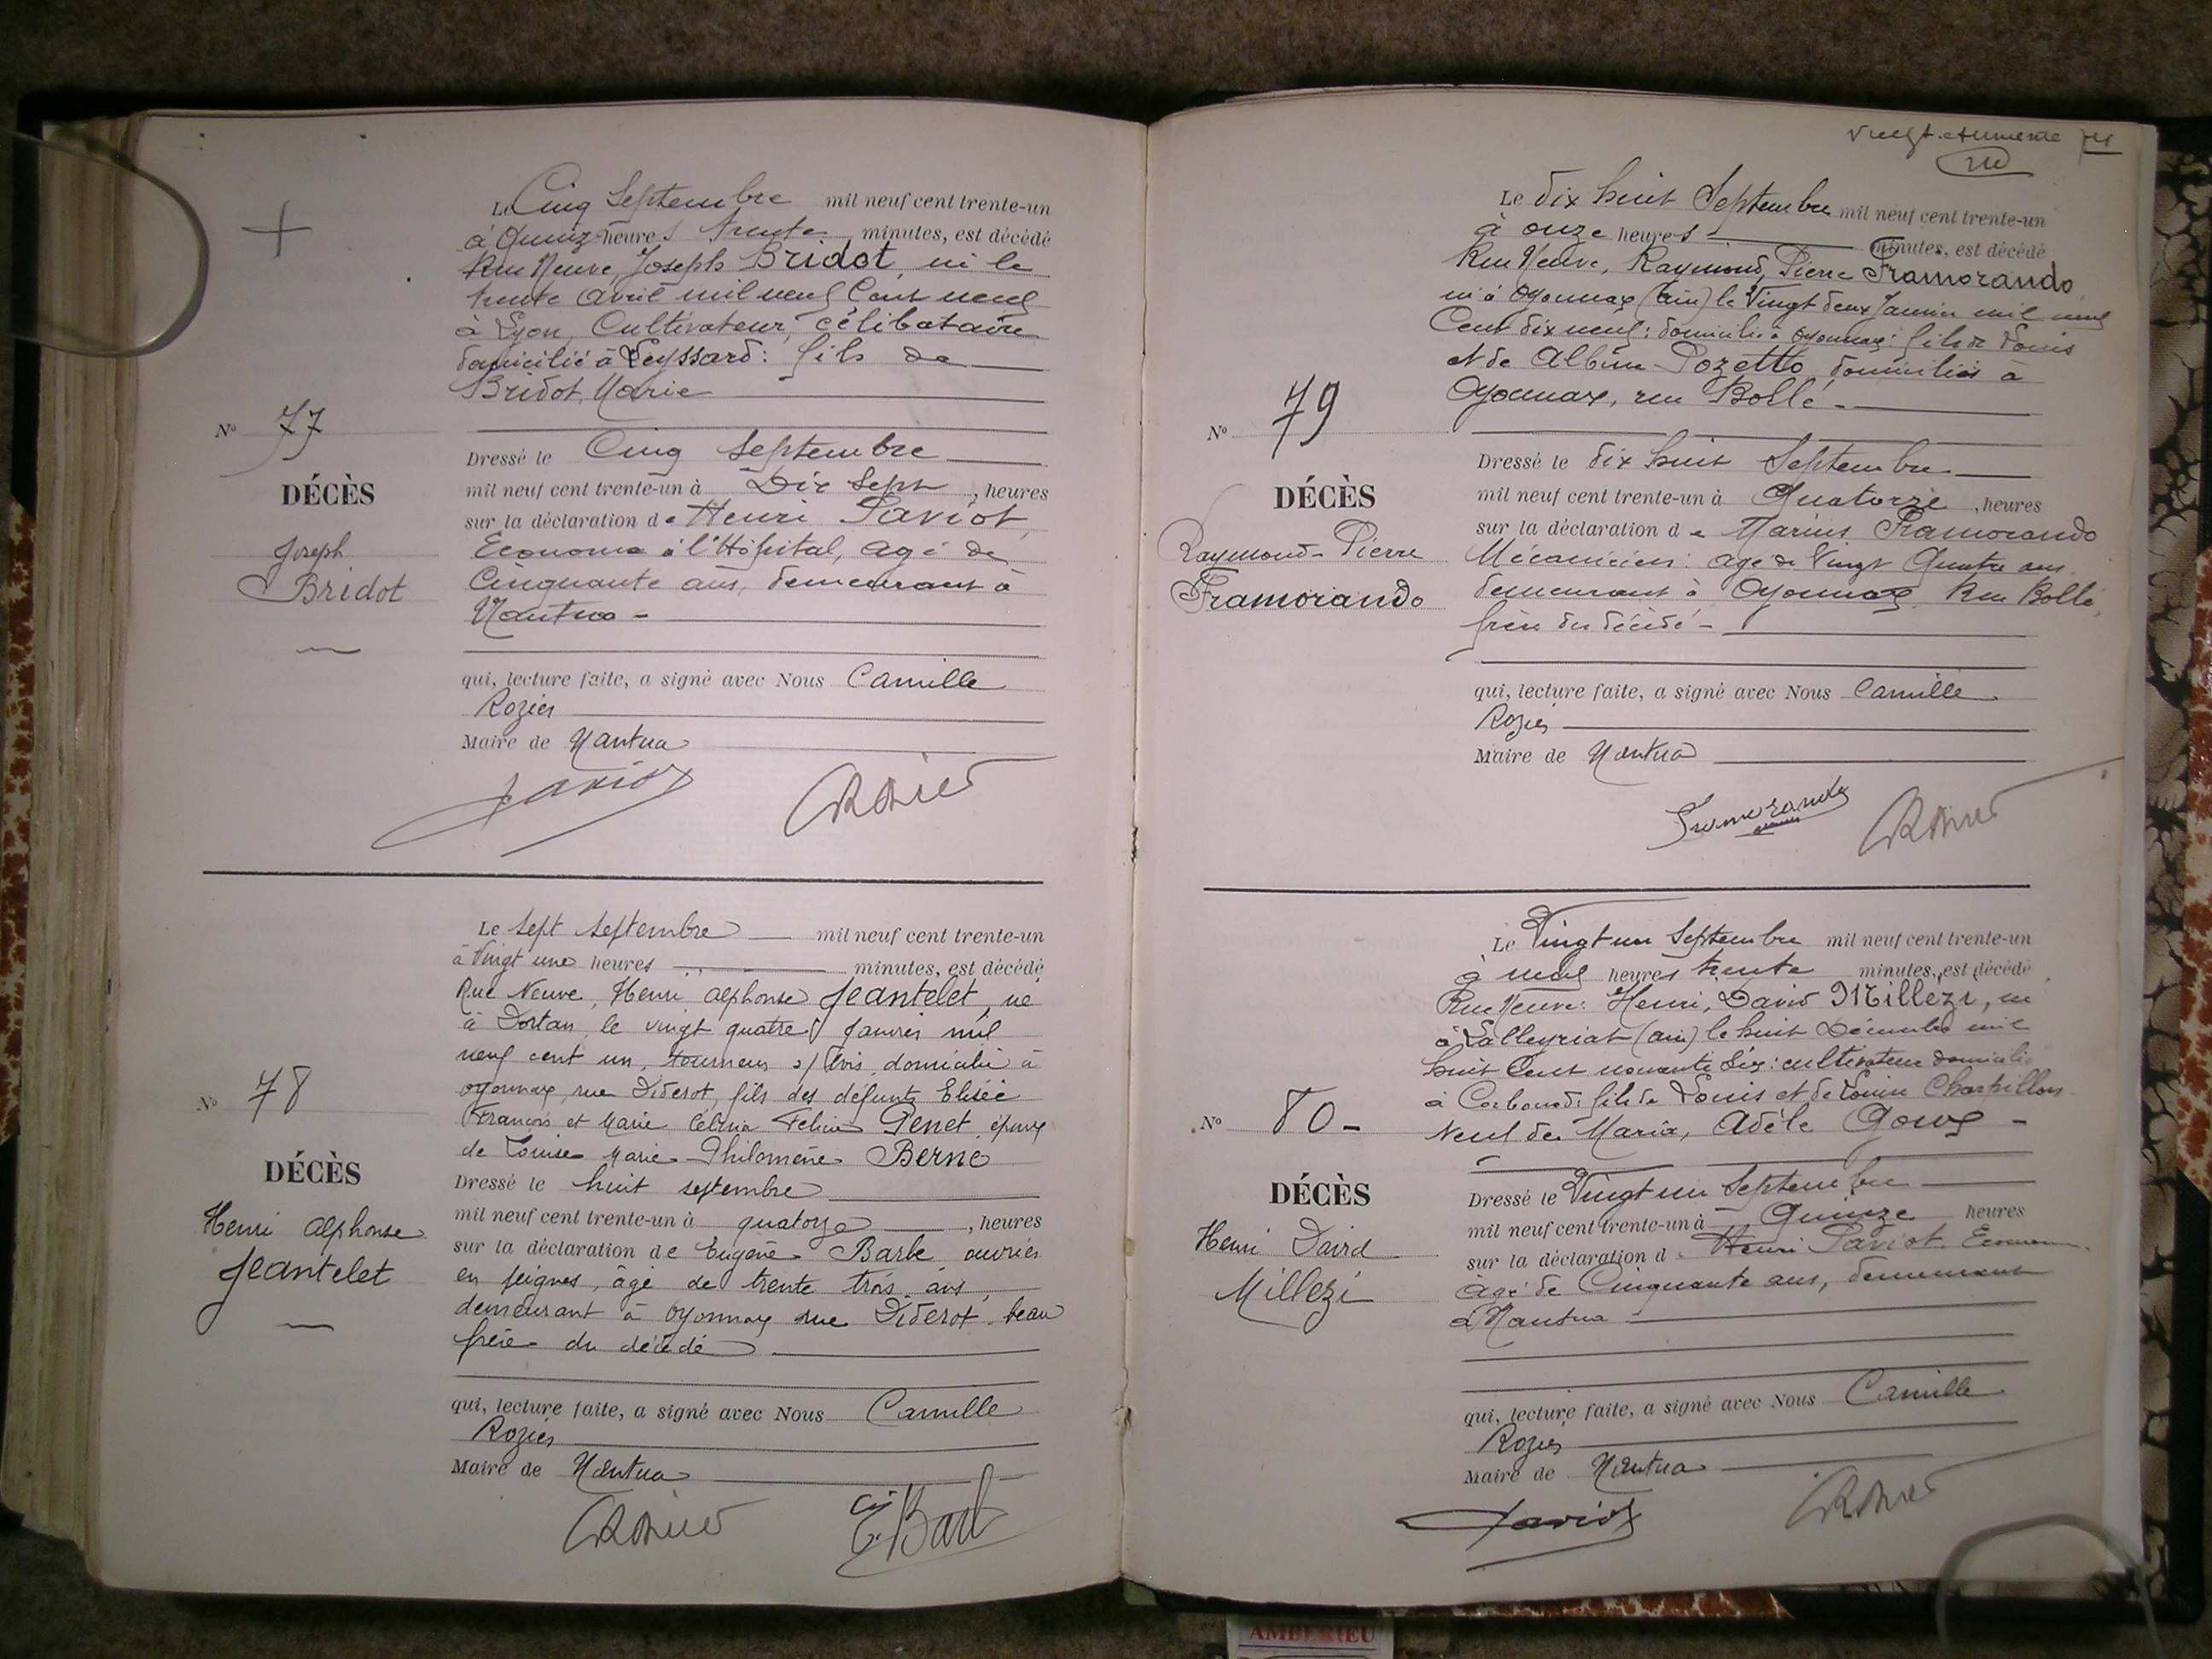 Le Cinq Septembre mil neuf cent trente-un
à Quinze heures trente minutes, est décédé
Rue Neuve, Joseph Bridot, né le
trente avril mil neuf Cent neuf
à Lyon, Cultivateur, célibataire
domicilié à Leyssard: fils de
Bridot, Marie
Nº 77
DÉCÈS
Joseph
Bridot
Dressé le Cinq Septembre
mil neuf cent trente-un à Dix Sept, heures
sur la déclaration de Henri Saviot,
Econome à l'Hôpital, agé de
Cinquante ans, demeurant à
Nantua -
qui, lecture faite, a signé avec Nous Camille
Rozier
Maire de Nantua
Saviot
Rozier
Le sept septembre mil neuf cent trente-un
à Vingt une heures minutes, est décédé
Rue Neuve, Henri Alphonse Jeantelet, né
à Dortan, le vingt quatre Janvier mil
neuf cent un, tourneur s/ bois, domicilié à
oyonnax, rue Diderot, fils des défunts Elisée
François et Marie Célina Felicie Penet, époux
de Louise Marie Philomène Berne
Nº 78
DÉCÈS
Henri Alphonse
Jeantelet
Dressé le huit septembre
mil neuf cent trente-un à quatorze, heures
sur la déclaration de Eugène Barbe ouvrier
en peignes, âgé de trente trois ans,
demeurant à oyonnax rue Diderot, beau
frère du décédé
qui, lecture faite, a signé avec Nous Camille
Rozier
Maire de Nantua
Rozier
E. Barbe
vingt-et-unième
Le dix huit Septembre mil neuf cent trente-un
à onze heures minutes, est décédé
Rue Neuve, Raymond, Pierre Framorando
né à Oyonnax (Ain) le Vingt deux Janvier mil neuf
Cent dix neuf: domicilié à oyonnax: fils de Louis
et de Albina Pozetto, domiciliés à
Oyonnax, rue Bollé -
Nº 79
DÉCÈS
Raymond-Pierre
Framorando
Dressé le dix huit Septembre
mil neuf cent trente-un à Quatorze, heures
sur la déclaration de Marius Framorando
Mécanicien: agé de Vingt Quatre ans
demeurant à Oyonnax, Rue Bollé,
frère du décédé -
qui, lecture faite, a signé avec Nous Camille
Rozier
Maire de Nantua
Framorando
Rozier
Le Vingt un Septembre mil neuf cent trente-un
à neuf heures trente minutes, est décédé
Rue Neuve: Henri, David Millezi, né
à Lalleyriat (ain) le huit Décembre mil
huit Cent nonante Six: cultivateur domicilié
à Corbonod: fils de Louis et de Louise Charpillon
Veuf de Maria, Adèle Goux -
Nº 80 -
DÉCÈS
Henri David
Millezi
Dressé le Vingt un Septembre
mil neuf cent trente-un à Quinze heures
sur la déclaration de Henri Saviot, Econome
âgé de Cinquante ans, demeurant
à Nantua -
qui, lecture faite, a signé avec Nous Camille
Rozier
Maire de Nantua
Saviot
Rozier
AMBERIEU